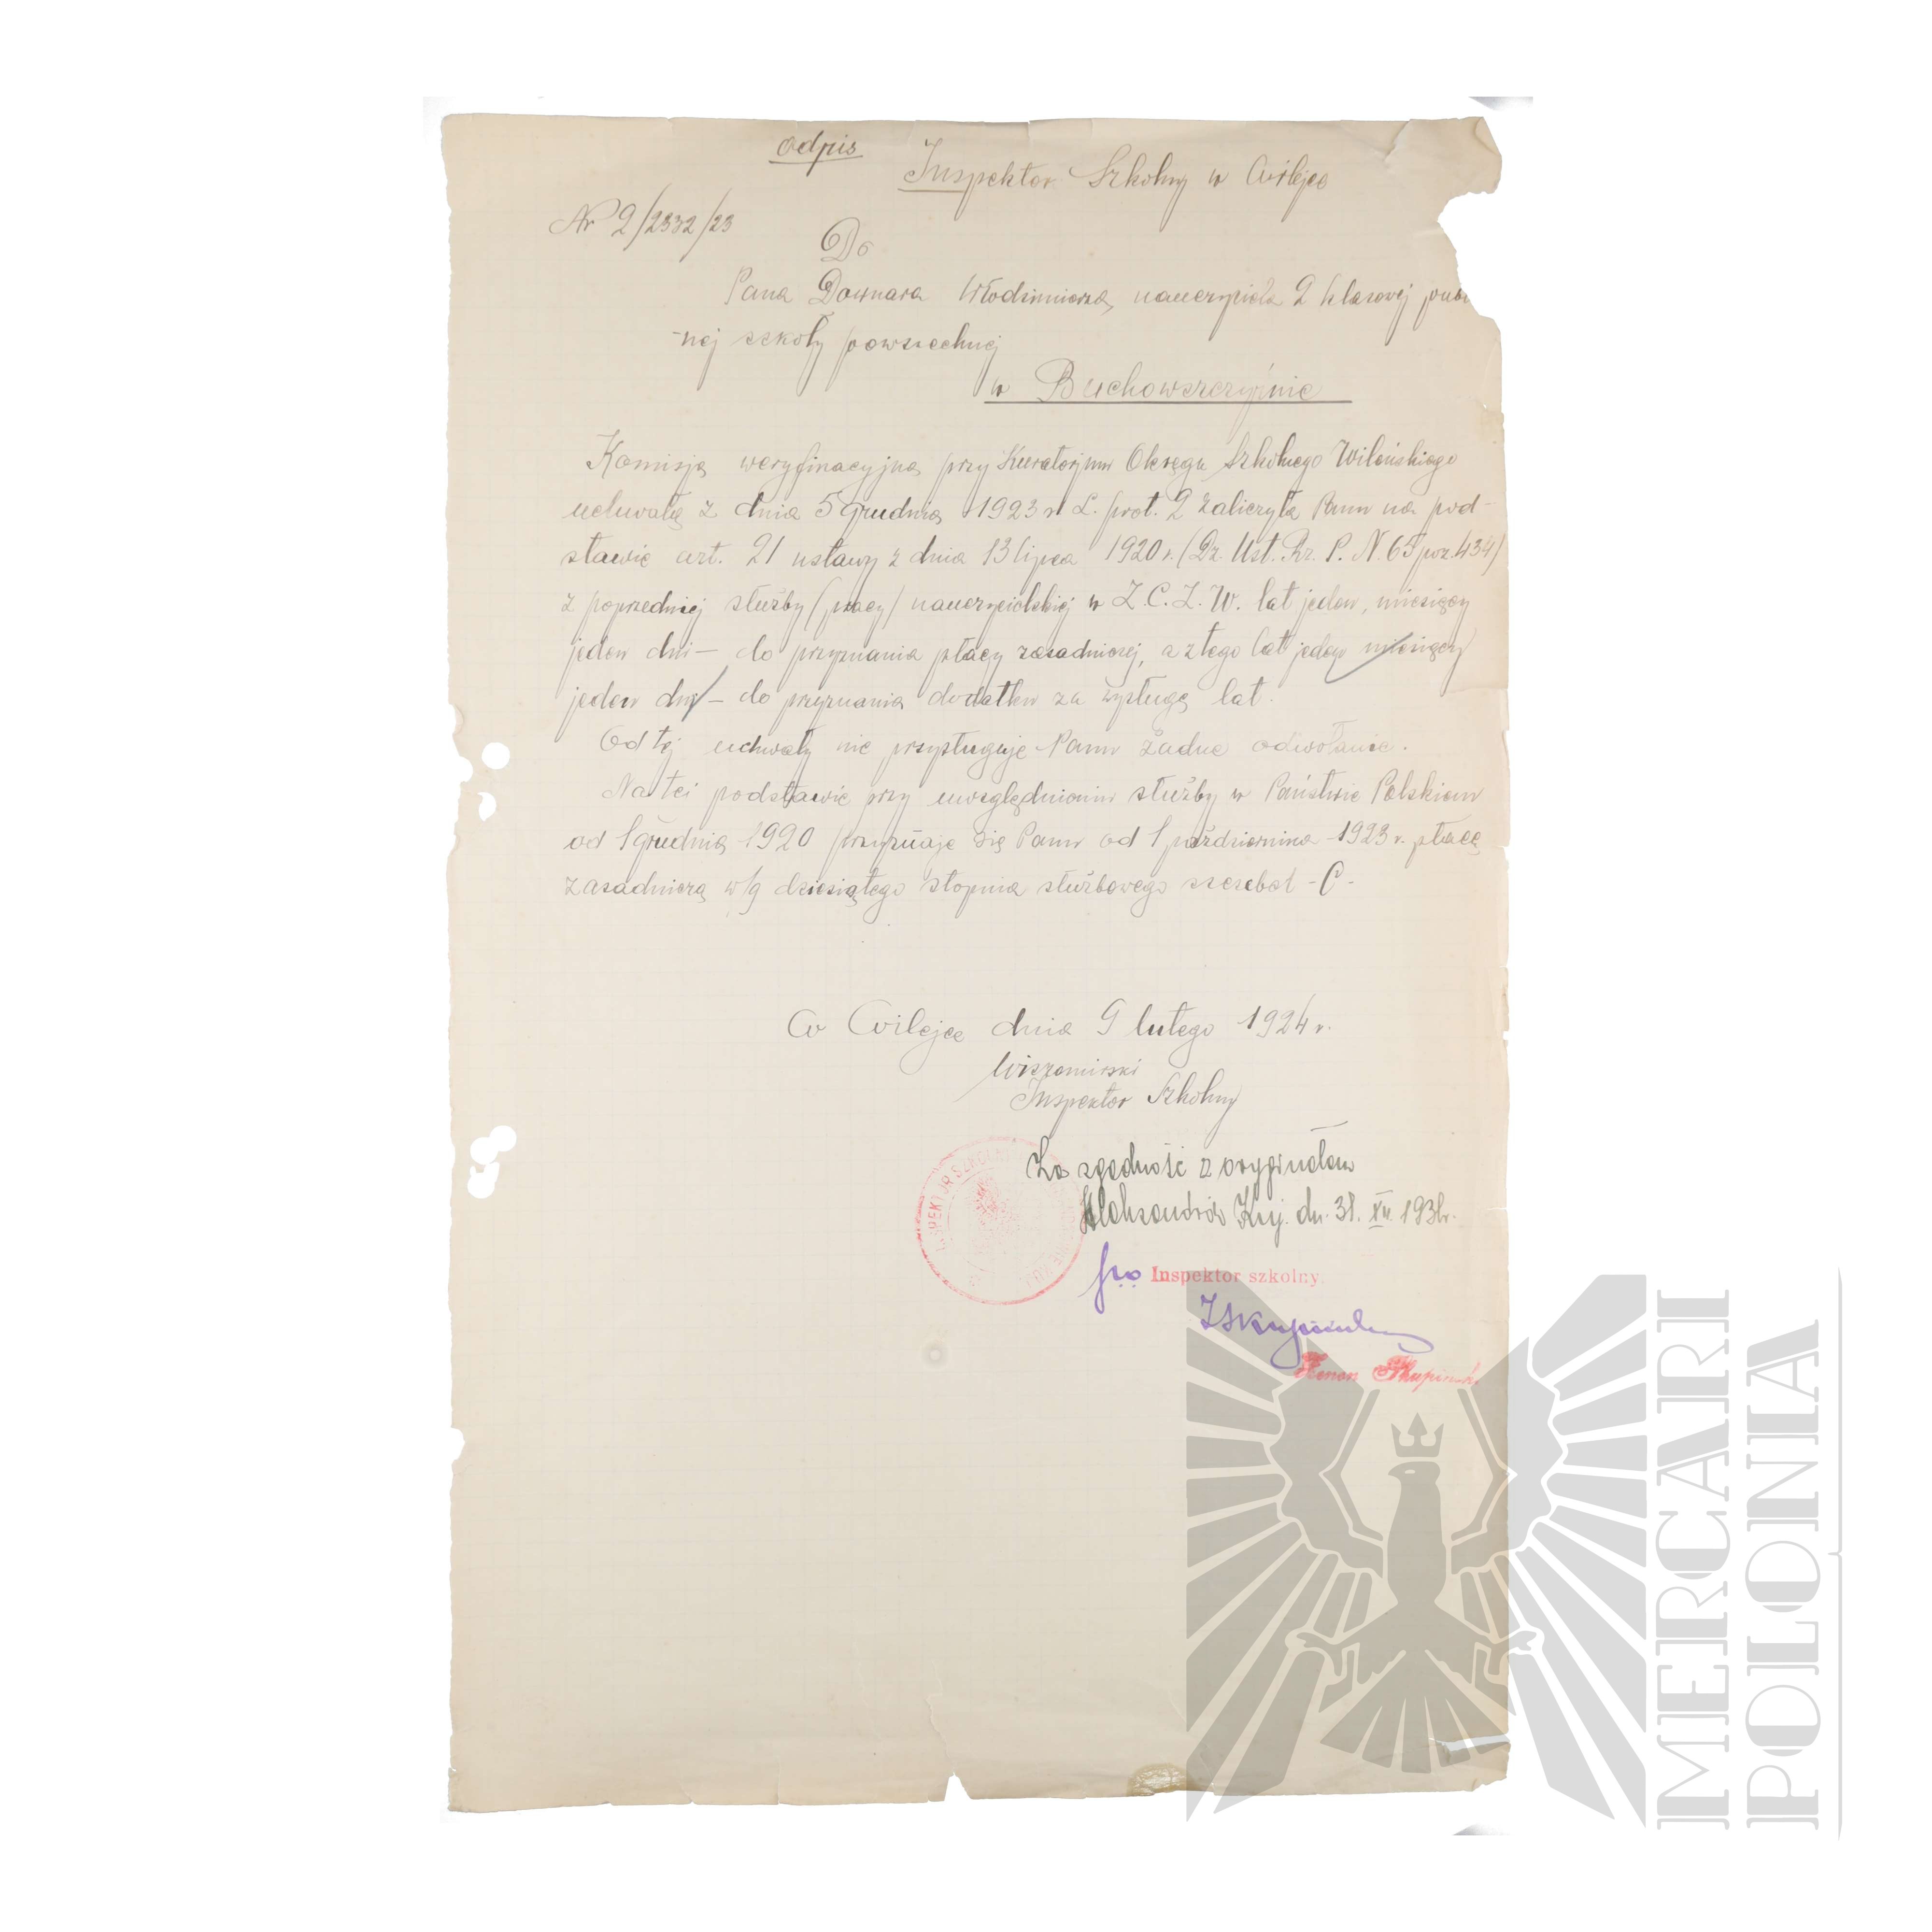 Odpis
Inspektor Szkolny w Wilejce
Nr 2/2332/23
Do
Pana Downara Włodzimierza, nauczyciela 2 klasowej pub
-nej szkoły powszechnej
w Buchowszczyźnie
Komisja weryfinacyjna przy Kuratorjum Okręgu Szkolnego Wileńskiego
uchwałą z dnia 5 grudnia 1923 r. L. prot. 2 zaliczyła Panu na pod-
stawie art. 21 ustawy z dnia 13 lipca 1920 r. (Dz. Ust. Rz. P. N. 65 poz. 434)
z poprzedniej służby (pracy) nauczycielskiej w Z.C.Z.W. lat jeden, miesięcy
jeden dni — do przyznania płacy zasadniczej, a z tego lat jeden miesięcy
jeden dni — do przyznania dodatku za wysługę lat.
Od tej uchwały nie przysługuje Panu żadne odwołanie.
Na tej podstawie przy uwzględnieniu służby w Państwie Polskiem
od 1 grudnia 1920 przyznaje się Panu od 1 października 1923 r. płacę
zasadniczą w/g dziesiątego stopnia służbowego szczebel - C -
W Wilejce dnia 9 lutego 1924 r.
Inspektor Szkolny
Za zgodność z oryginałem
Aleksandrów Kuj. dn. 31. XII. 193
INSPEKTOR SZKOLNY
Inspektor szkolny.
Zenon Skupiński
MERCARI
POLONIA